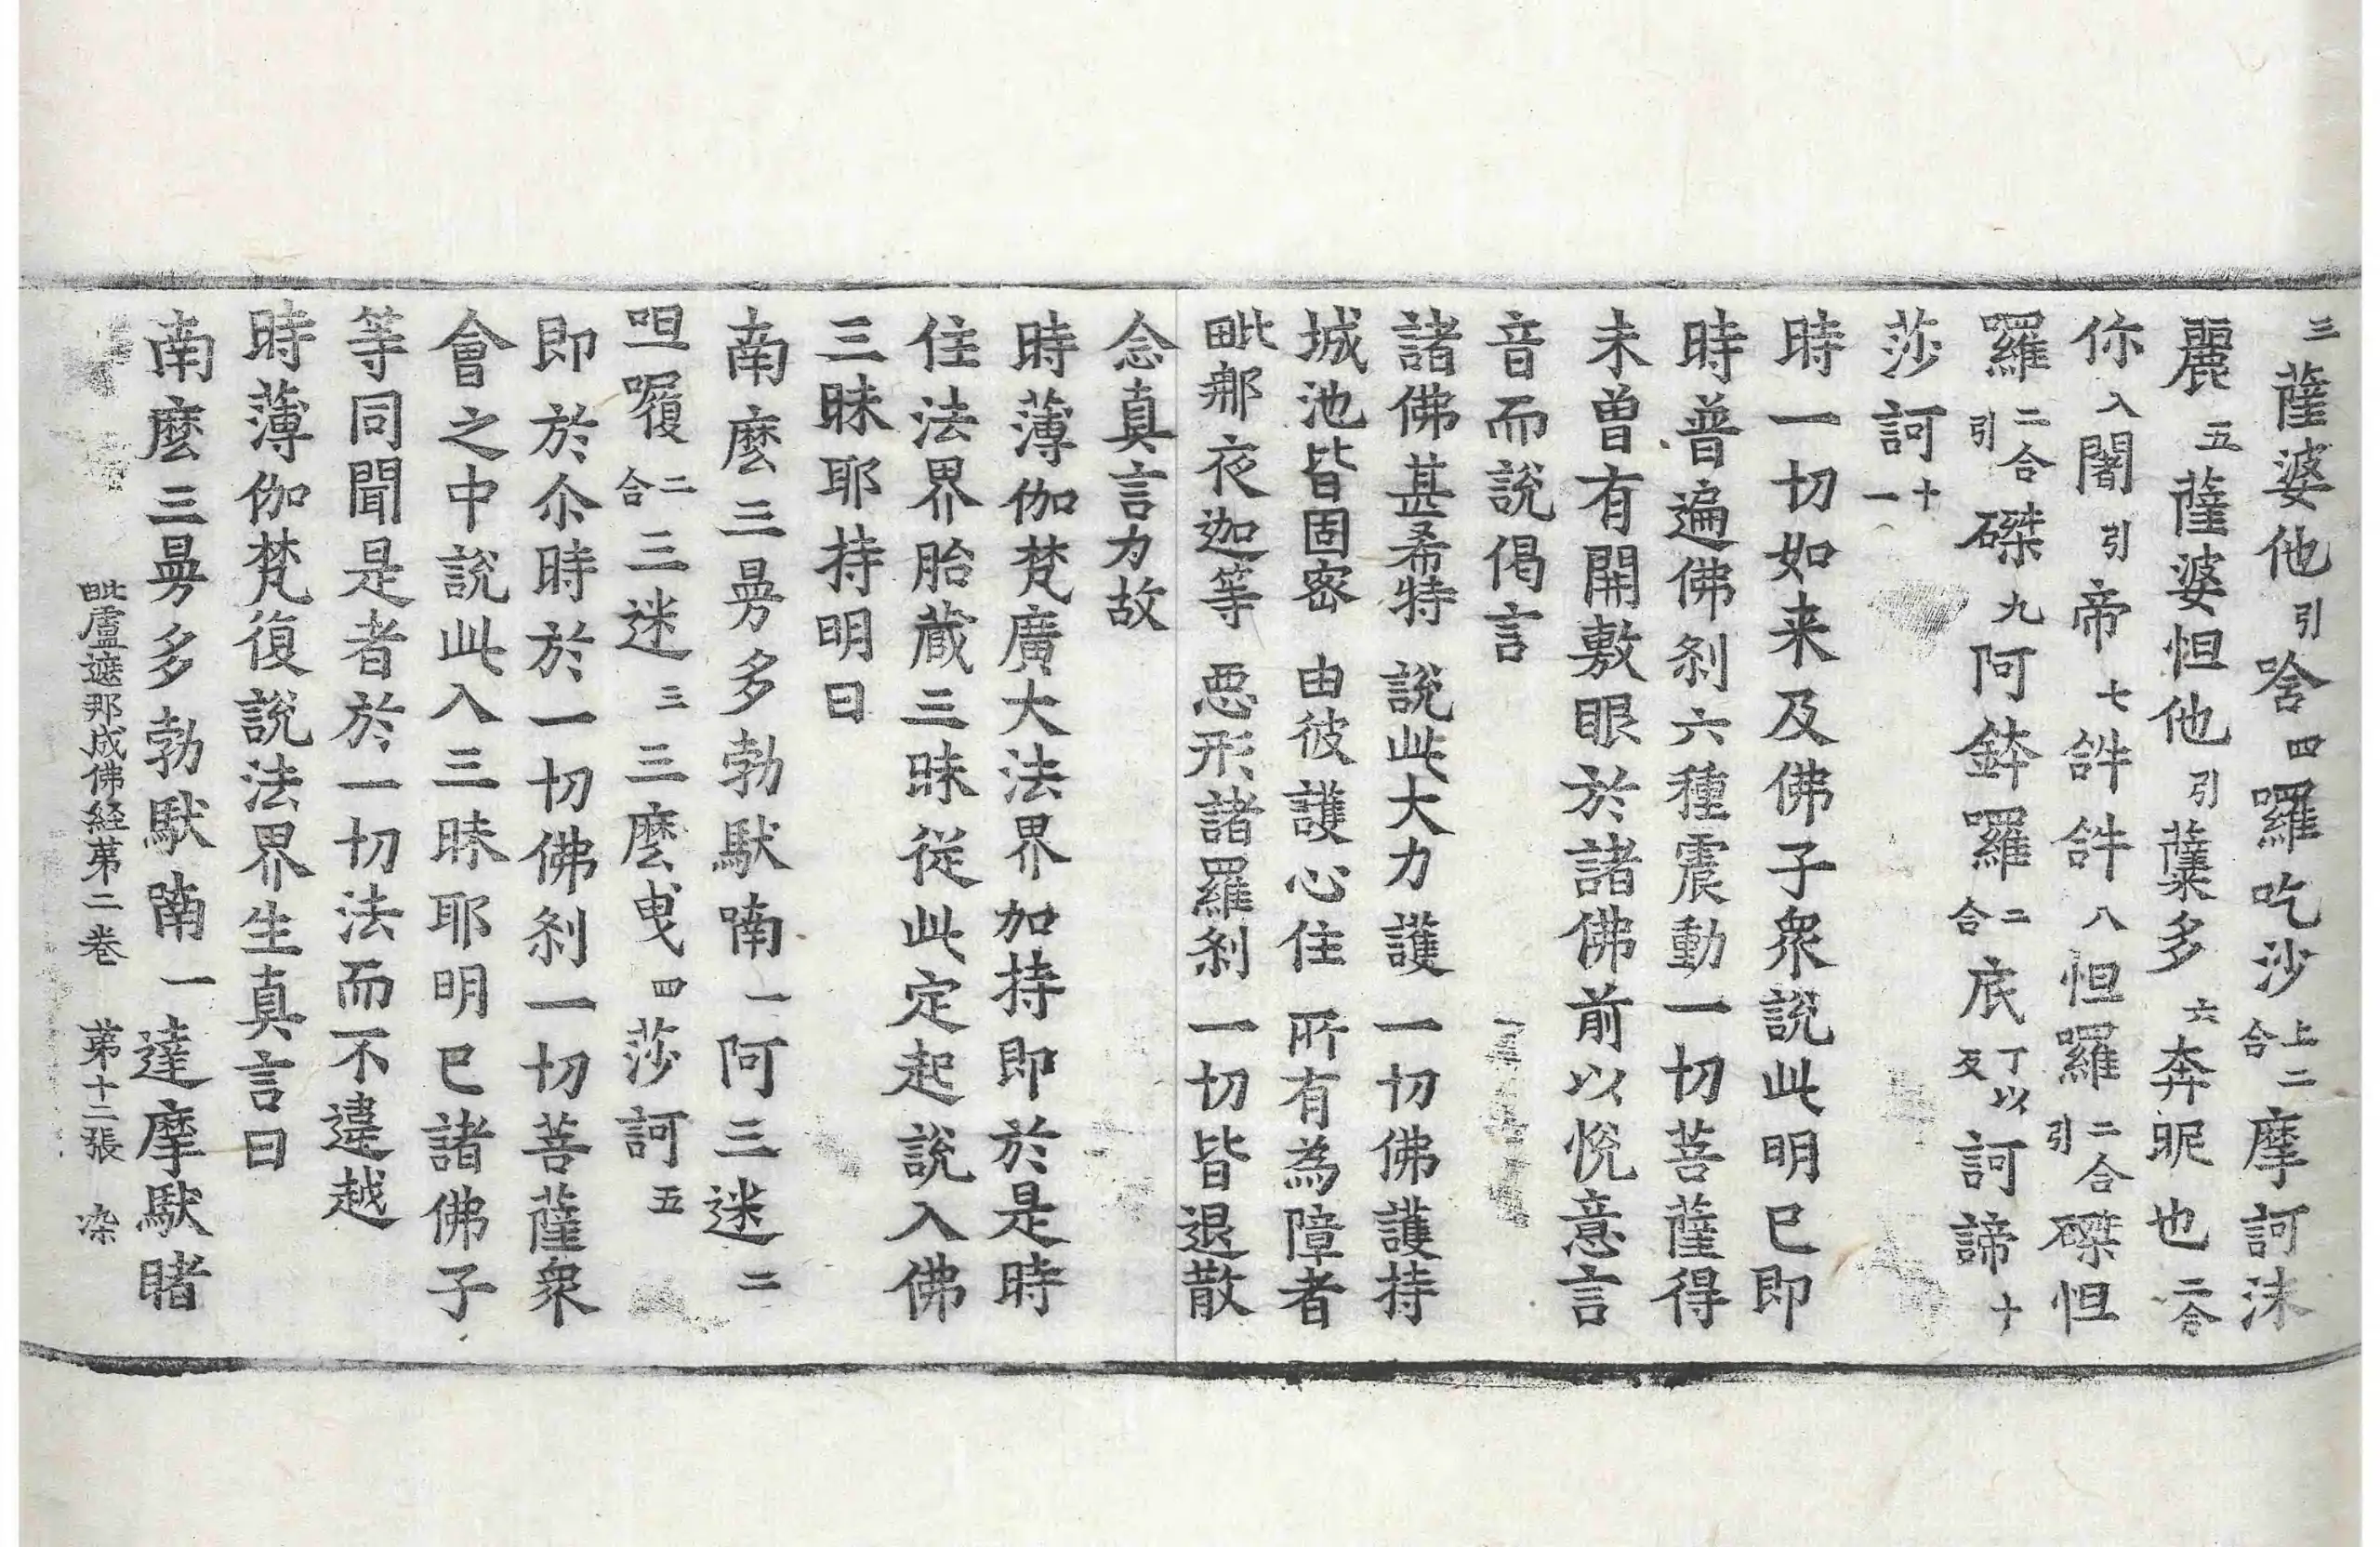 三薩婆他引唅四囉吃沙上二合摩訶沫
麗五薩婆怛他引蘖多六奔昵也二合
你入闍引帝七𤙖𤙖八怛羅二合引磔怛
羅二合引磔九阿鉢羅二合底丁以反訶諦十
莎訶十一
時一切如来及佛子衆說此明已即
時普遍佛刹六種震動一切菩薩得
未曾有開敷眼於諸佛前以悅意言
音而說偈言
諸佛甚希特 說此大力護 一切佛護持
城池皆固密 由彼護心住 所有為障者
毗那夜迦等 惡形諸羅刹 一切皆退散
念真言力故
時薄伽梵廣大法界加持即於是時
住法界胎藏三昧從此定起說入佛
三昧耶持明曰
南麼三曼多勃馱喃一阿三迷二
呾囉二合三迷三三麼曳四莎訶五
即於尒時於一切佛刹一切菩薩衆
會之中說此入三昧耶明已諸佛子
等同聞是者於一切法而不違越
時薄伽梵復說法界生真言曰
南麼三曼多勃馱喃一達摩馱睹
毗盧遮那成佛経苐二卷 苐十二張 染